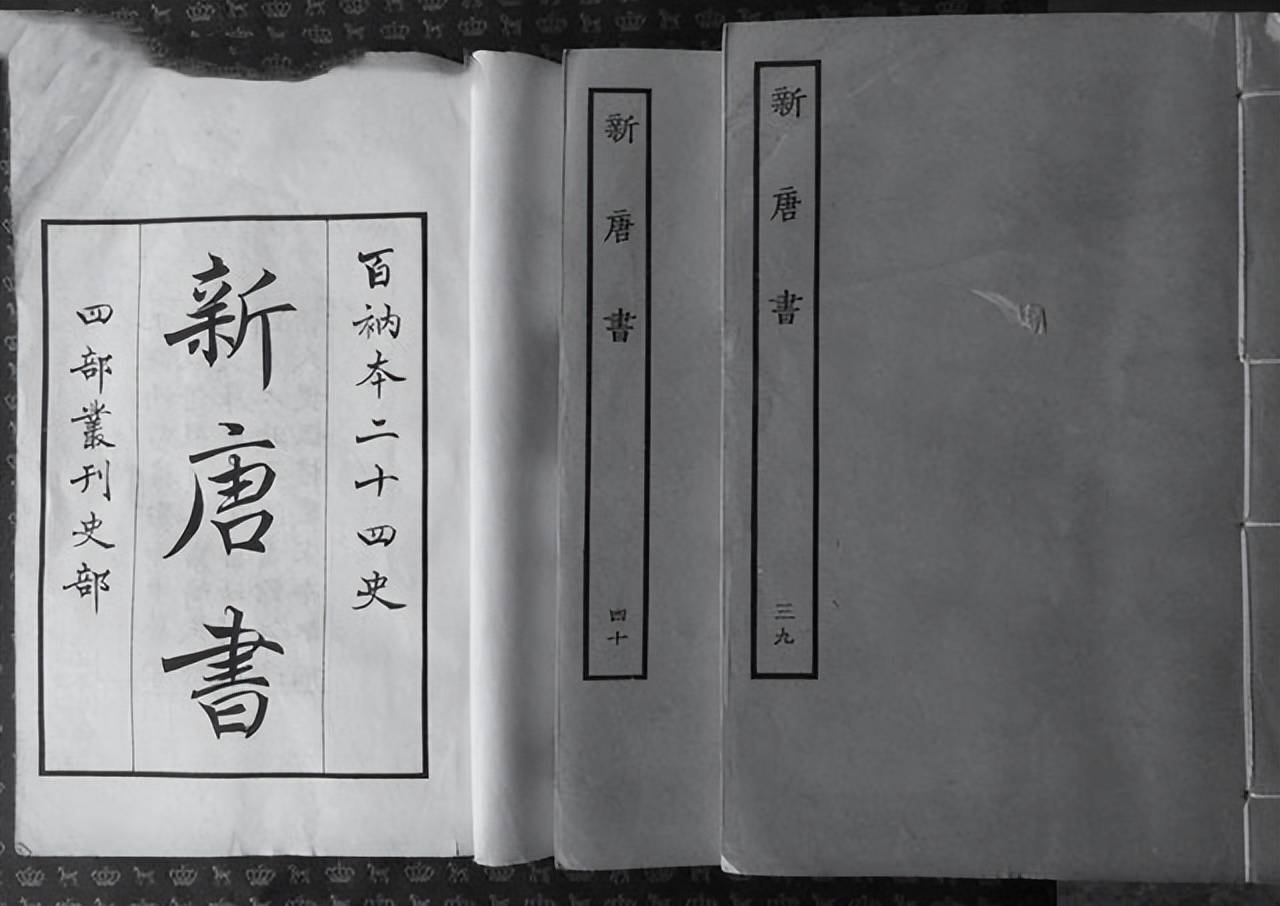 百衲本二十四史
新唐書
四部叢刊史部
新唐書
四十
新唐書
三九